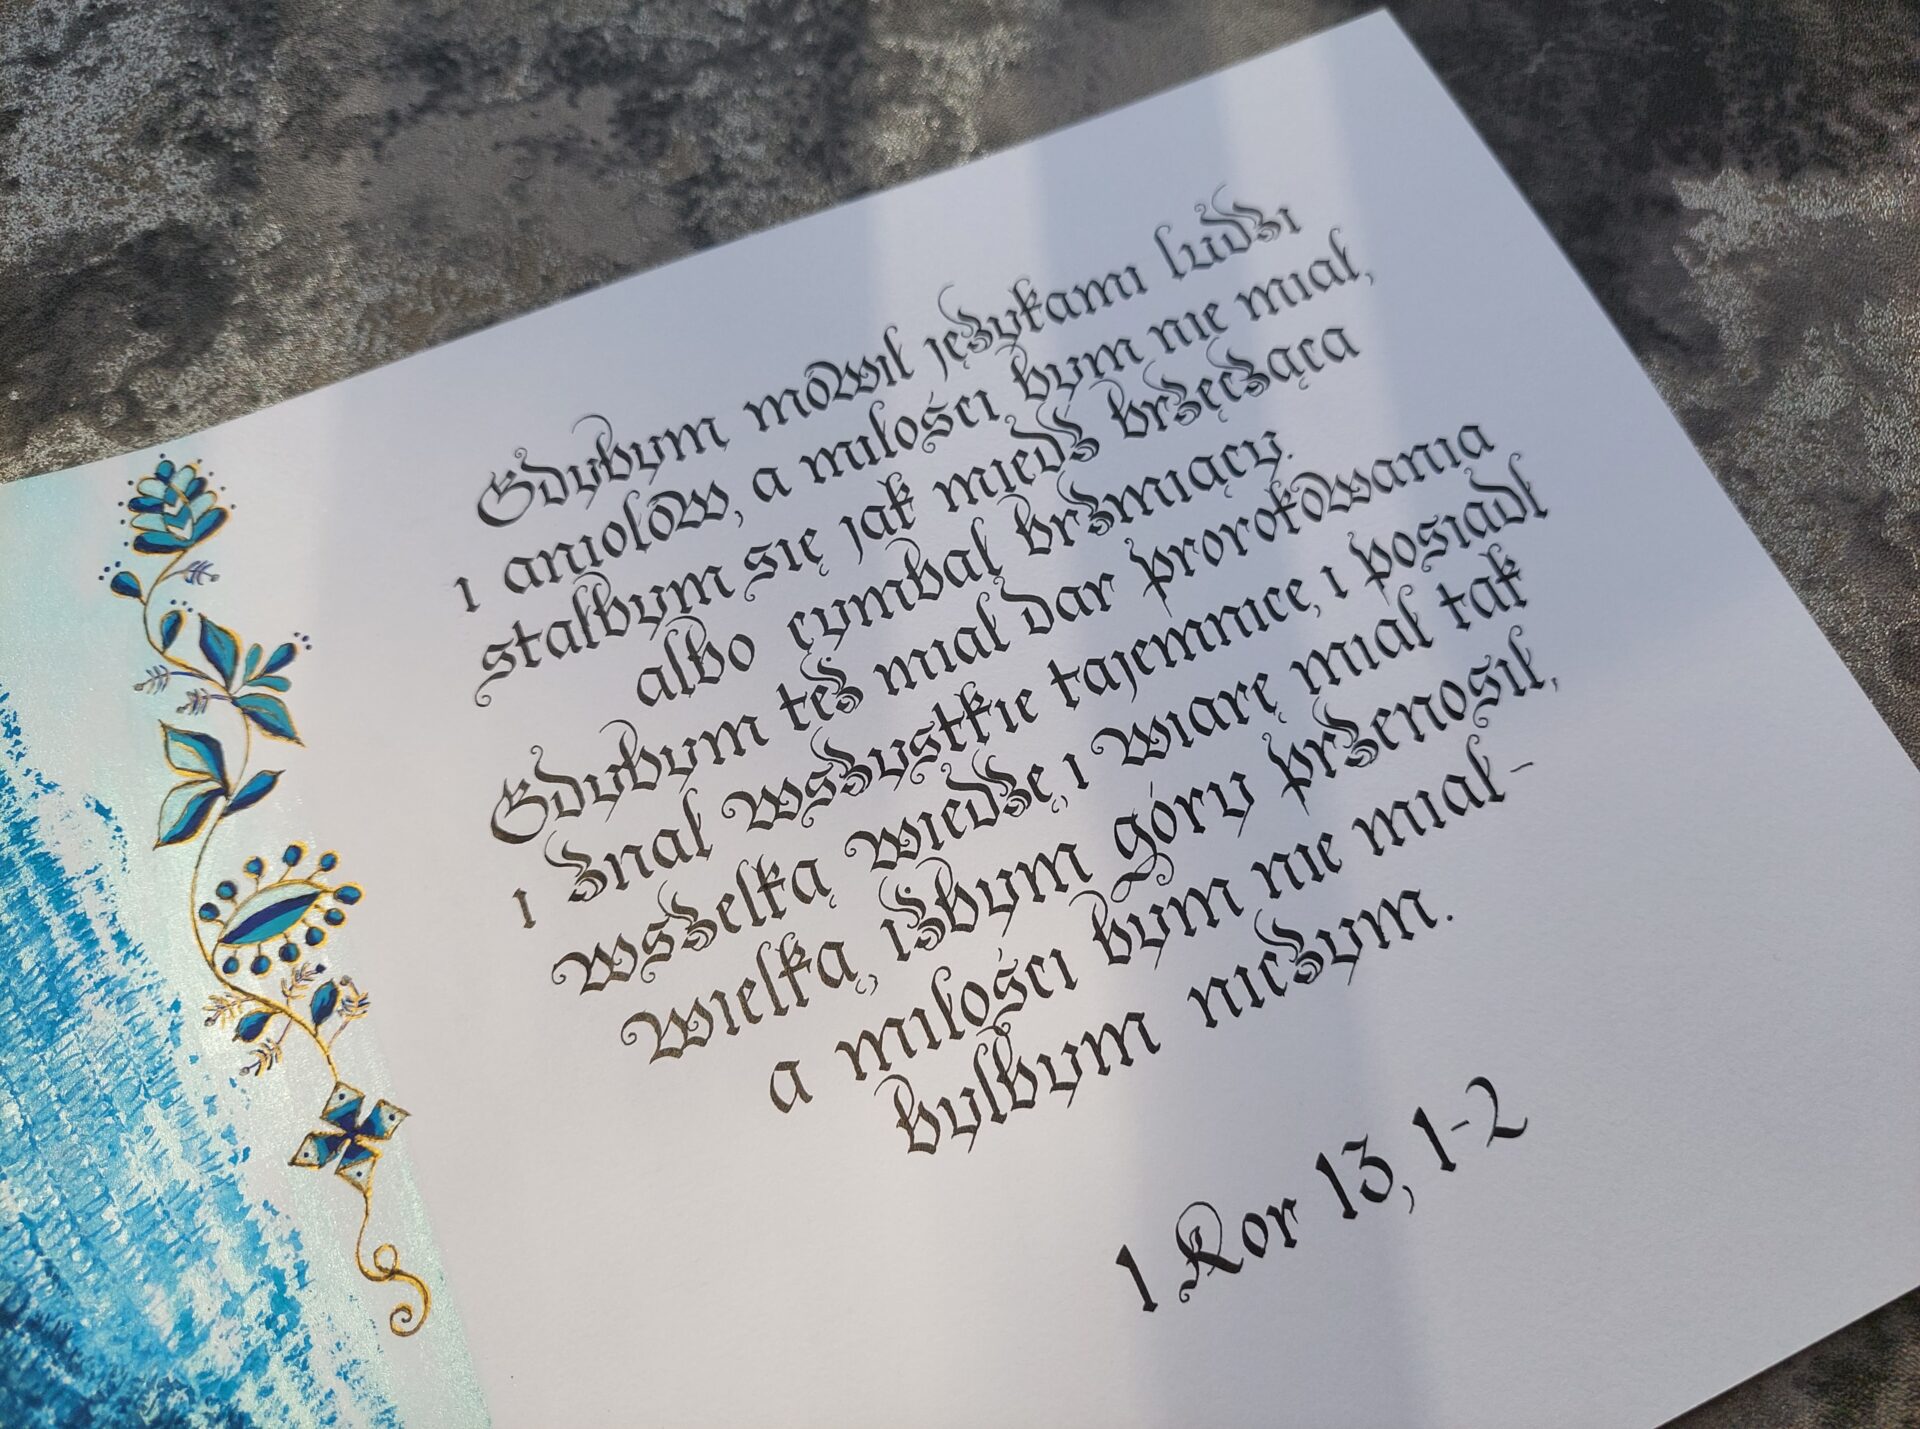 Gdybym mówił językami ludzi
i aniołów, a miłości bym nie miał,
stałbym się jak miedź brzęcząca
albo cymbał brzmiący.
Gdybym też miał dar prorokowania
i znał wszystkie tajemnice, i posiadł
wszelką wiedzę, i wiarę miał tak
wielką, iżbym góry przenosił,
a miłości bym nie miał -
byłbym niczym.
1 Kor 13, 1-2